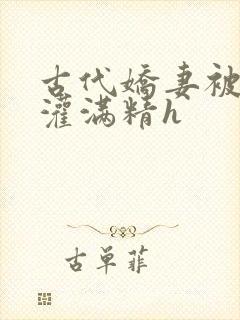 古代嬌妻被
灌满精h
古單菲